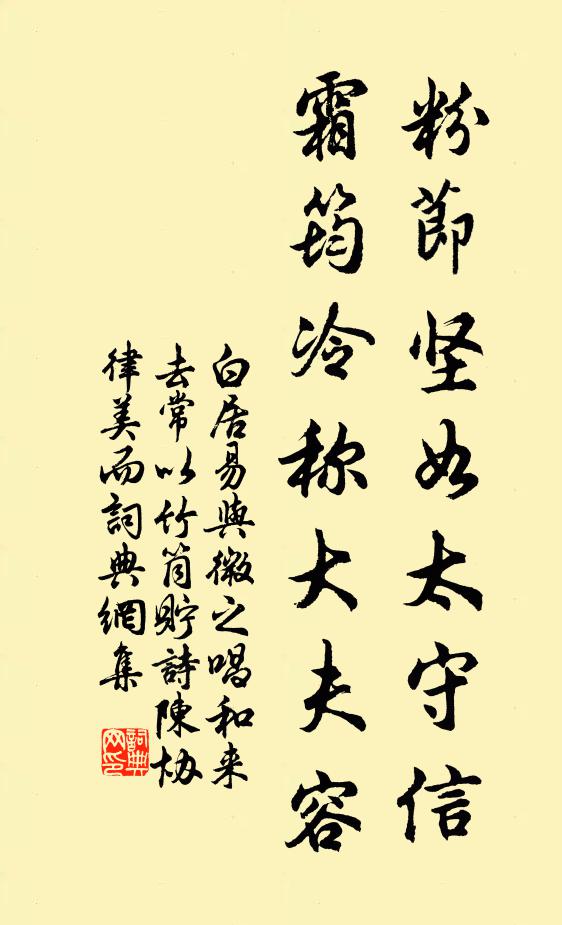 粉莭坚如太守信
霜筠冷称大夫容
白居易與微之唱和来
去常以竹筒貯詩陳协
律美而詞典網集
詞典网印